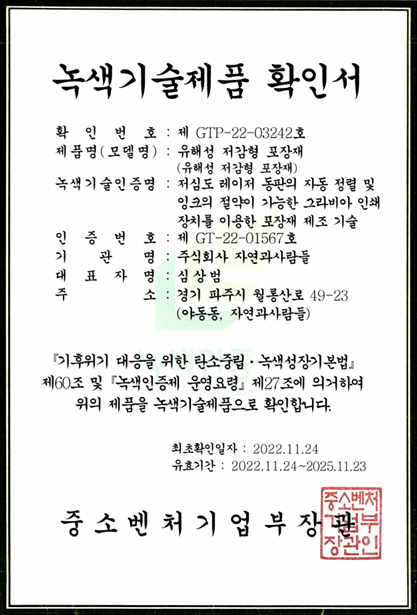 녹색기술제품 확인서
확 인 번 호 : 제 GTP-22-03242호
제품명(모델명) : 유해성 저감형 포장재
(유해성 저감형 포장재)
녹색기술인증명 : 저심도 레이저 동판의 자동 정렬 및
잉크의 절약이 가능한 그라비아 인쇄
장치를 이용한 포장재 제조 기술
인 증 번 호 : 제 GT-22-01567호
기 관 명 : 주식회사 자연과사람들
대 표 자 명 : 심상범
주 소 : 경기 파주시 월롱산로 49-23
(야동동, 자연과사람들)
『기후위기 대응을 위한 탄소중립·녹색성장기본법』
제60조 및 『녹색인증제 운영요령』 제27조에 의거하여
위의 제품을 녹색기술제품으로 확인합니다.
최초확인일자 : 2022.11.24
유효기간 : 2022.11.24~2025.11.23
중소벤처기업부장관
중소벤처
기업부
장관인